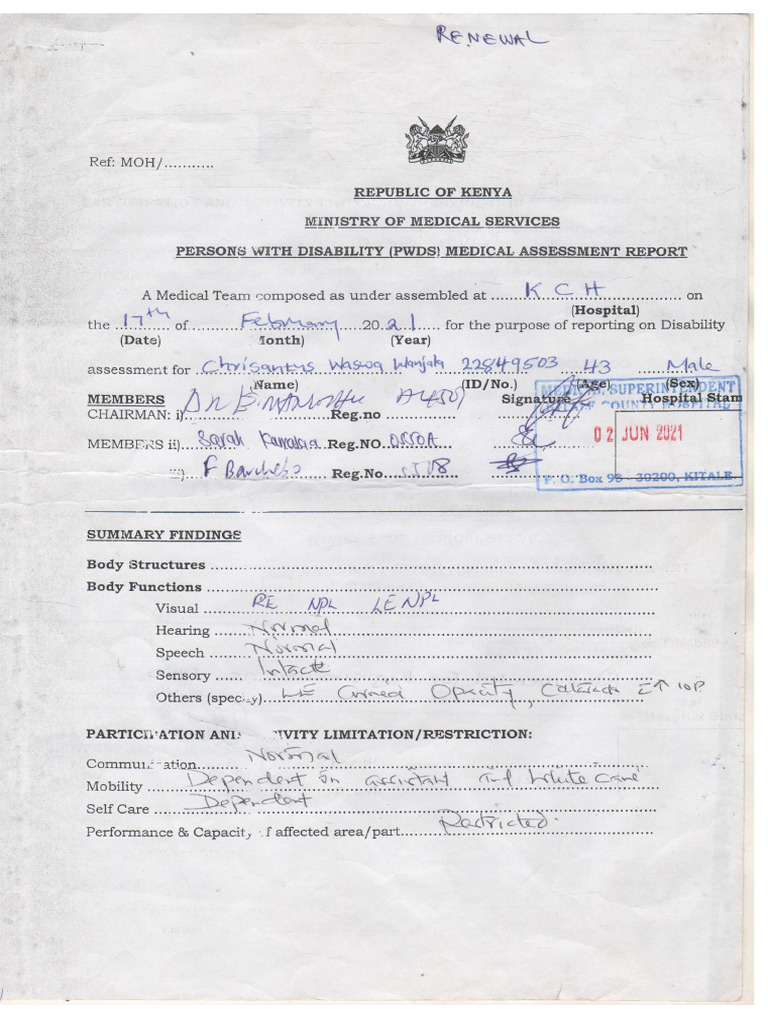 RENEWAL
Ref: MOH/...........
REPUBLIC OF KENYA
MINISTRY OF MEDICAL SERVICES
PERSONS WITH DISABILITY (PWDS) MEDICAL ASSESSMENT REPORT
A Medical Team composed as under assembled at K C H on
(Hospital)
the 17th of February 2021 for the purpose of reporting on Disability
(Date) Month) (Year)
assessment for Chrisantus Waswa Wanjala 22849503 43 Male
(Name) (ID/No.) (Age) (Sex)
MEMBERS Signature Hospital Stam
MEDICAL SUPERINTENDENT
COUNTY HOSPITAL
CHAIRMAN: i) DR Reg.no A4509
02 JUN 2021
MEMBERS ii) Sarah Reg.NO
iii) F Reg.No
P. O. Box 98 - 30200, KITALE.
SUMMARY FINDINGS
Body Structures
Body Functions
Visual RE NPL LE NPL
Hearing Normal
Speech Normal
Sensory Intact
Others (specify) LE Corneal Opacity, Cataract ↑ IOP
PARTICIPATION AND ACTIVITY LIMITATION/RESTRICTION:
Communication Normal
Mobility Dependent on assistant and white cane
Self Care Dependent
Performance & Capacity of affected area/part Restricted.